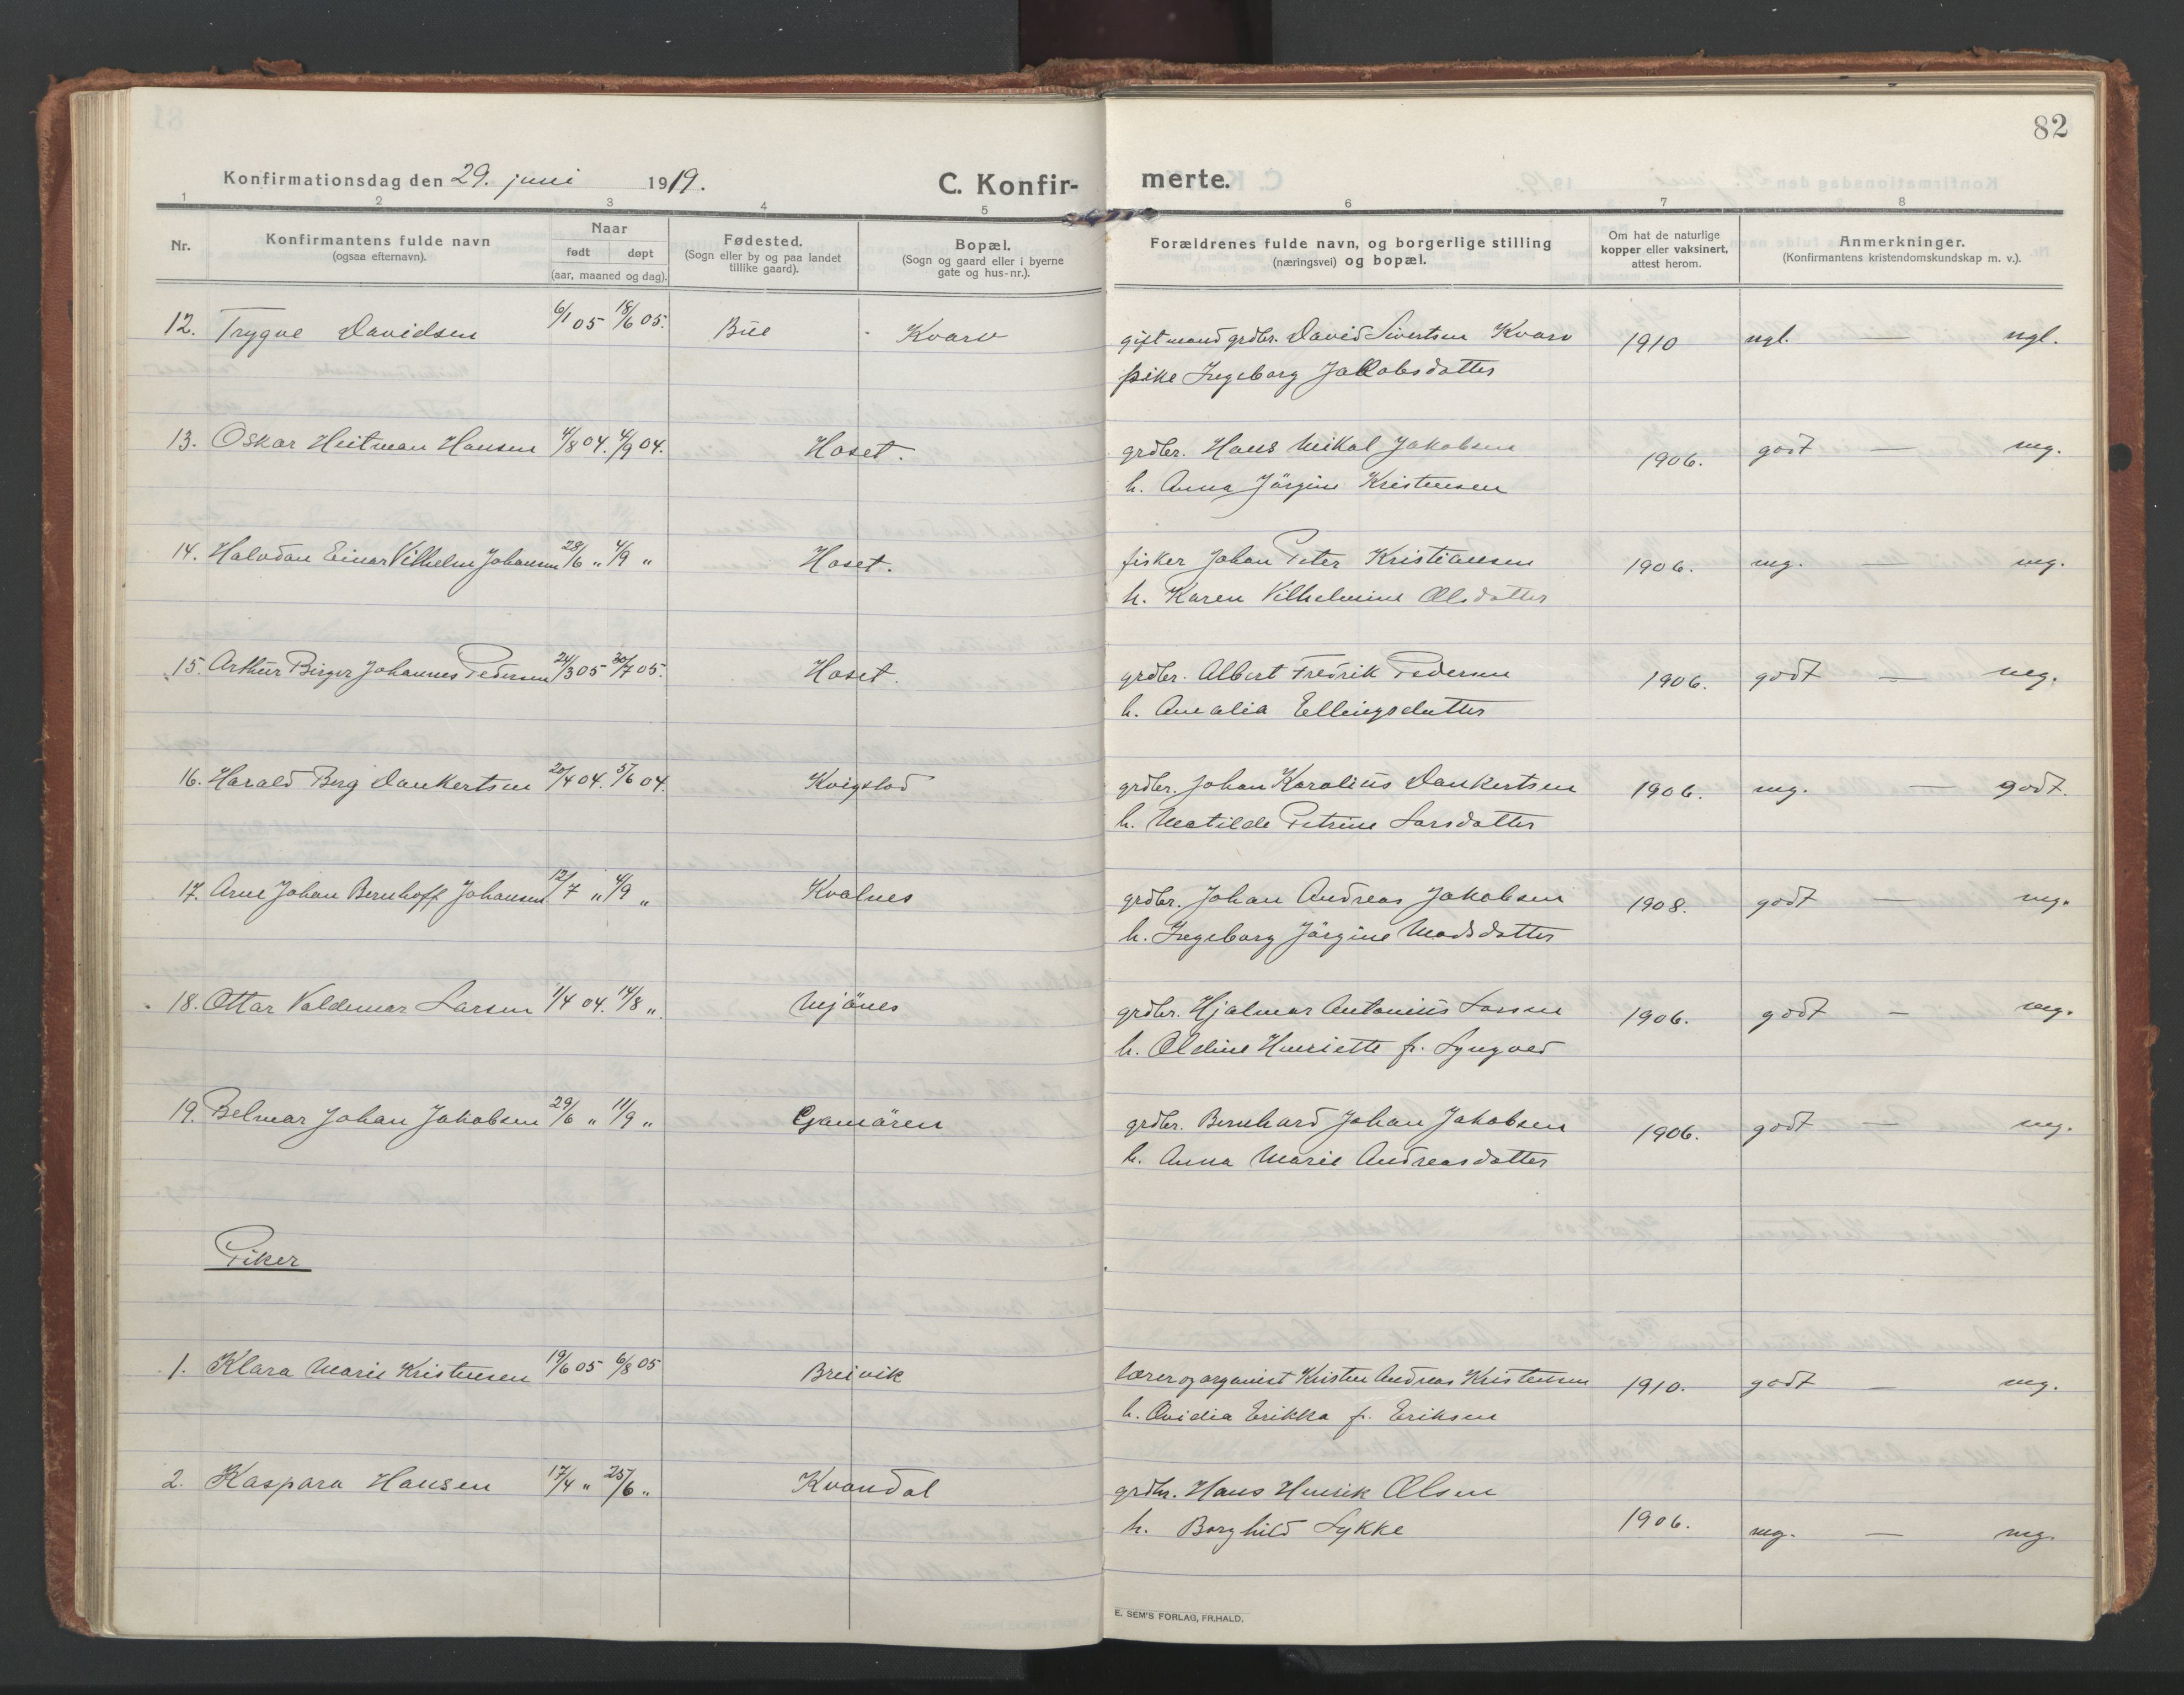 82
Konfirmationsdag den 29. juni 1919. C. Konfir- merte.
1 2 3 4 5 6 7 8
Nr. Konfirmantens fulde navn (ogsaa efternavn). Naar født døpt (aar, maaned og dag). Fødested. (Sogn eller by og paa landet tillike gaard). Bopæl. (Sogn og gaard eller i byerne gate og hus-nr.). Forældrenes fulde navn, og borgerlige stilling (næringsvei) og bopæl. Om hat de naturlige kopper eller vaksinert, attest herom. Anmerkninger. (Konfirmantens kristendomskundskap m. v.).
12. Trygve Davidsen 6/1 05 18/6 05. Bue Kvarv gift mand grdbr. David Sivertsen Kvarv 1910 ngl. — ngl.
pike Ingeborg Jakobsdatter
13. Oskar Heitman Hansen 4/8 04. 4/9 04. Hoset. grdbr. Hans Mikal Jakobsen 1906. godt — mg.
h. Anna Jörgine Kristensen
14. Halvdan Einar Vilhelm Johansen 28/6 „ 4/9 „ Hoset. fisker Johan Peter Kristiansen 1906. mg. — mg.
h. Karen Vilhelmine Olsdatter
15. Arthur Birger Johannes Pedersen 24/3 05 30/7 05. Hoset. grdbr. Albert Fredrik Pedersen 1906. godt — mg.
h. Amalia Ellingsdatter
16. Harald Berg Dankertsen 20/4 04. 5/6 04. Kvigstad grdbr. Johan Karolius Dankertsen 1906. mg. — godt.
h. Matilde Petrine Larsdatter
17. Arne Johan Bernhoff Johansen 12/7 „ 4/9 „ Kvalnes grdbr. Johan Andreas Jakobsen 1908. godt — mg.
h. Ingeborg Jörgine Madsdatter
18. Ottar Valdemar Larsen 1/4 04. 14/8 „. Mjönes grdbr. Hjalmar Antonius Larsen 1906. godt — mg.
h. Oldine Henriette f. Lyngved
19. Belmar Johan Jakobsen 29/6 „ 11/9 „ Gamären grdbr. Bernhard Johan Jakobsen 1906. godt — mg.
h. Anna Marie Andreasdatter
Piker
1. Klara Marie Kristensen 19/6 05 6/8 05 Breivik lærer og organist Kristen Andreas Kristensen 1910. godt — mg.
h. Ovidia Erikka f. Eriksen
2. Kaspara Hansen 17/4 „ 25/6 „ Kvandal grdbr. Hans Henrik Olsen
h. Borghild Lykke 1906. mg. — mg.
E. SEM'S FORLAG, FR.HALD.